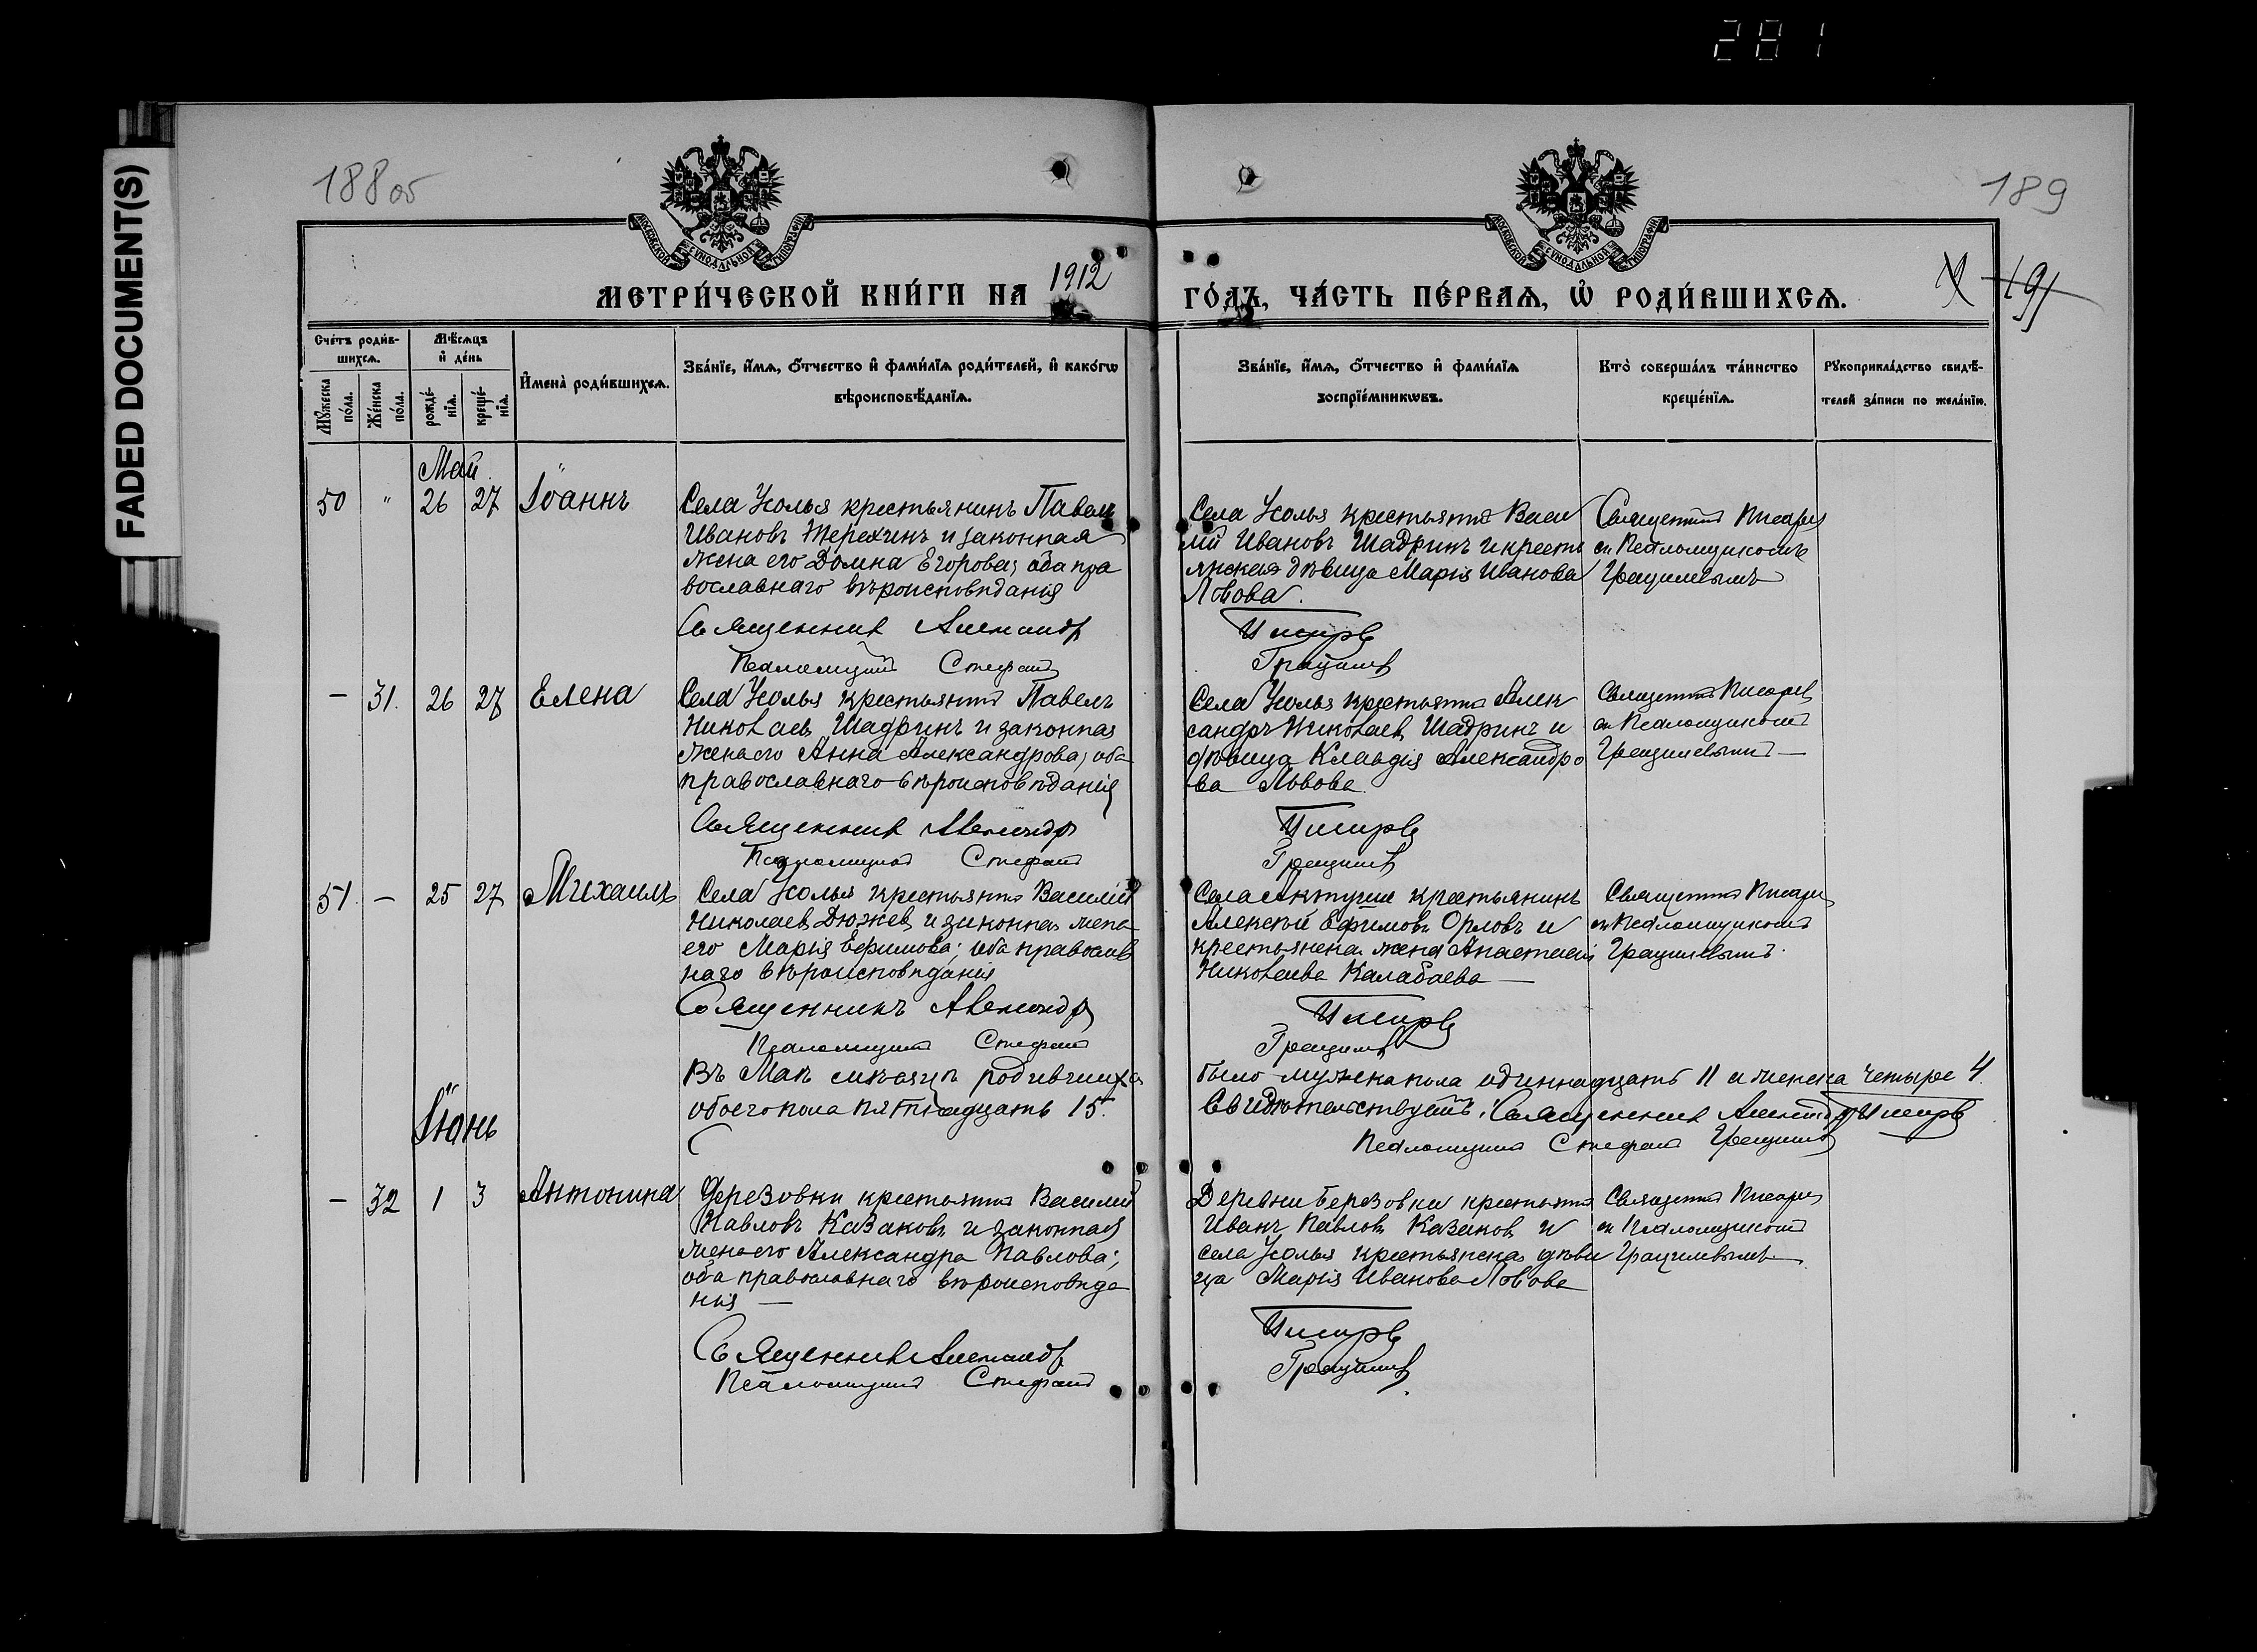 281
FADED DOCUMENT(S)
188об
189
МОСКОВСКОЙ СѴНОДАЛЬНОЙ ТИПОГРАФІИ
МОСКОВСКОЙ СѴНОДАЛЬНОЙ ТИПОГРАФІИ
МЕТРИ́ЧЕСКОЙ КНИ́ГИ НА 1912 ГО́ДЪ, ЧА́СТЬ ПЕ́РВАѦ, Ѡ҆ РОДИ́ВШИХСѦ.
191
Сче́тъ роди́в-
шихсѧ.
Мꙋ́жеска по́ла.
Же́нска по́ла.
Мѣ́сѧцъ
и҆ де́нь
рожде́-
нїѧ.
креще́-
нїѧ.
И҆мена̀ роди́вшихсѧ.
Зва́нїе, и҆́мѧ, ѻ҆́тчество и҆ фами́лїѧ роди́телей, и҆ како́гѡ
вѣроисповѣ́данїѧ.
Зва́нїе, и҆́мѧ, ѻ҆́тчество и҆ фами́лїѧ
воспрїе́мникѡвъ.
Кто̀ соверша́лъ та́инство
креще́нїѧ.
Рꙋкоприкла́дство свидѣ́-
телей за́писи по жела́нїю.
Май
50 " 26 27 Іоаннъ
Села Усолья крестьянинъ Павелъ
Ивановъ Терехинъ и законная
жена его Домна Егорова; оба пра
вославнаго вѣроисповѣданія
Священникъ Александръ
Псаломщикъ Стефанъ
Села Усолья крестьянинъ Васи
лій Ивановъ Шадринъ и кресть
янская дѣвица Марія Иванова
Львова.
Писаревъ
Грацилевъ
Священникъ Писаревъ
съ Псаломщикомъ
Грацилевымъ
— 31. 26 27 Елена
Села Усолья крестьянинъ Павелъ
Николаевъ Шадринъ и законная
жена его Анна Александрова; оба
православнаго вѣроисповѣданія
Священникъ Александръ
Псаломщикъ Стефанъ
Села Усолья крестьянинъ Алек
сандръ Николаевъ Шадринъ и
дѣвица Клавдія Александро
ва Львова.
Писаревъ
Грацилевъ
Священникъ Писаревъ
съ Псаломщикомъ
Грацилевымъ —
51 — 25 27 Михаилъ
Села Усолья крестьянинъ Василій
Николаевъ Дюжевъ и законная жена
его Марія Ефимова; оба православ
наго вѣроисповѣданія
Священникъ Александръ
Псаломщикъ Стефанъ
Села Актуши крестьянинъ
Алексѣй Ефимовъ Орловъ и
крестьянская жена Анастасія
Николаева Калабаева —
Писаревъ
Грацилевъ
Священникъ Писаревъ
съ Псаломщикомъ
Грацилевымъ.
Въ Маѣ мѣсяцѣ родившихся
обоего пола пятнадцать 15.
было мужска пола одиннадцать 11 а женска четыре 4.
Свидѣтельствуютъ: Священникъ Александръ Писаревъ
Псаломщикъ Стефанъ Грацилевъ
Іюнь
— 32 1 3 Антонина
Березовки крестьянинъ Василій
Павловъ Казаковъ и законная
жена его Александра Павлова;
оба православнаго вѣроисповѣда
нія —
Священникъ Александръ
Псаломщикъ Стефанъ
Деревни Березовки крестьянинъ
Иванъ Павловъ Казаковъ и
села Усолья крестьянская дѣви
ца Марія Иванова Львова
Писаревъ
Грацилевъ
Священникъ Писаревъ
съ Псаломщикомъ
Грацилевымъ